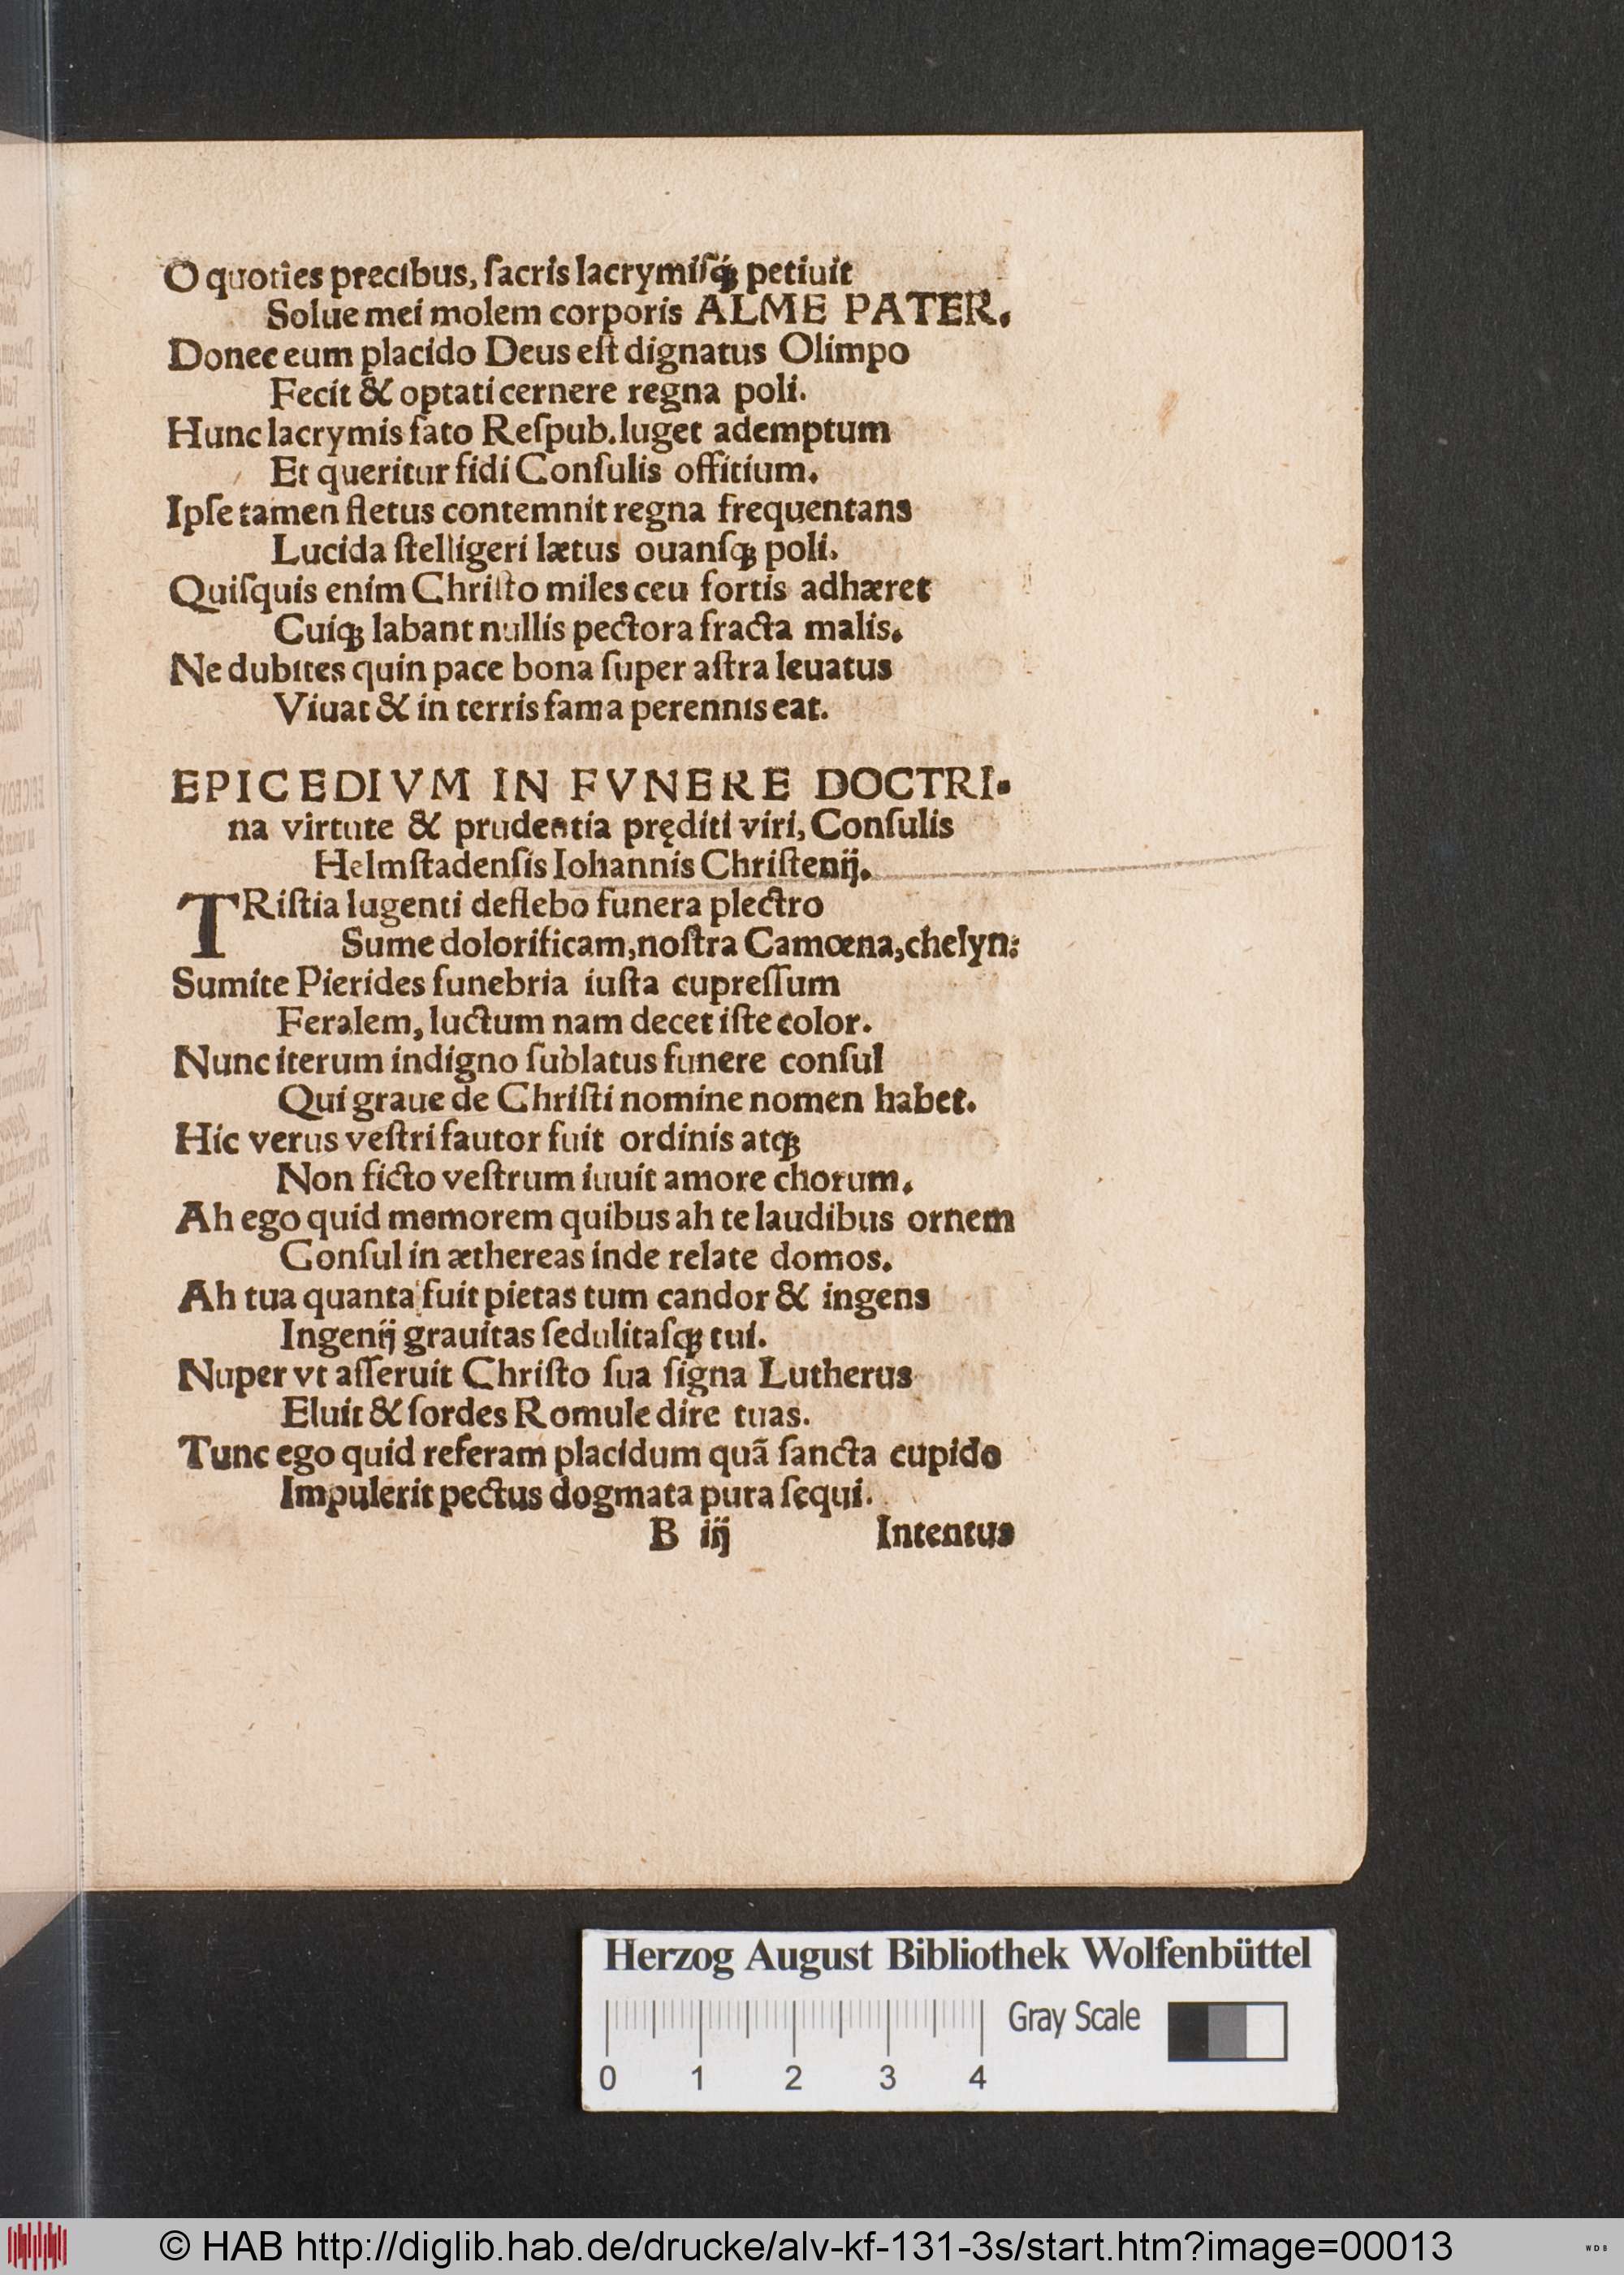 O quoties precibus, ſacris lacrymiſq́ꝫ petiuit
Solue mei molem corporis ALME PATER.
Donec eum placido Deus eſt dignatus Olimpo
Fecit & optati cernere regna poli.
Hunc lacrymis fato Reſpub. luget ademptum
Et queritur fidi Conſulis offitium.
Ipſe tamen fletus contemnit regna frequentans
Lucida ſtelligeri lætus ouanſqꝫ poli.
Quiſquis enim Chriſto miles ceu fortis adhæret
Cuiqꝫ labant nullis pectora fracta malis.
Ne dubites quin pace bona ſuper aſtra leuatus
Viuat & in terris fama perennis eat.
EPICEDIVM IN FVNERE DOCTRI-
na virtute & prudentia pręditi viri, Conſulis
Helmſtadenſis Iohannis Chriſtenij.
TRiſtia lugenti deflebo funera plectro
Sume dolorificam, noſtra Camœna, chelyn:
Sumite Pierides funebria iuſta cupreſſum
Feralem, luctum nam decet iſte color.
Nunc iterum indigno ſublatus funere conſul
Qui graue de Chriſti nomine nomen habet.
Hic verus veſtri fautor fuit ordinis atqꝫ
Non ficto veſtrum iuuit amore chorum.
Ah ego quid memorem quibus ah te laudibus ornem
Conſul in æthereas inde relate domos.
Ah tua quanta fuit pietas tum candor & ingens
Ingenij grauitas ſedulitaſqꝫ tui.
Nuper vt aſſeruit Chriſto ſua ſigna Lutherus
Eluit & ſordes Romule dire tuas.
Tunc ego quid referam placidum quã ſancta cupido
Impulerit pectus dogmata pura ſequi.
B iij Intentus
Herzog August Bibliothek Wolfenbüttel
Gray Scale
0 1 2 3 4
© HAB http://diglib.hab.de/drucke/alv-kf-131-3s/start.htm?image=00013
WDB